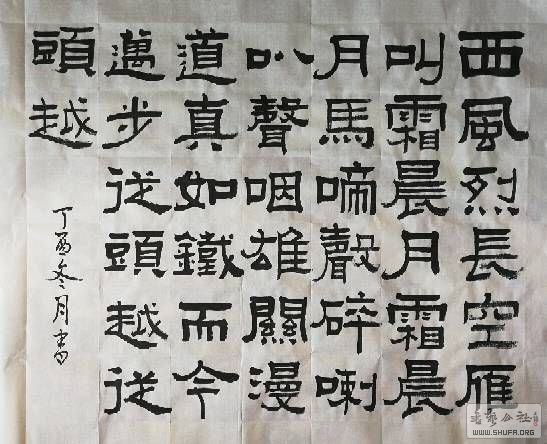 西風烈長空雁
叫霜晨月霜晨
月馬啼聲碎喇
叭聲咽雄關漫
道真如鐵而今
邁步從頭越從
頭越
丁酉冬月書
WWW.SHUFA.ORG